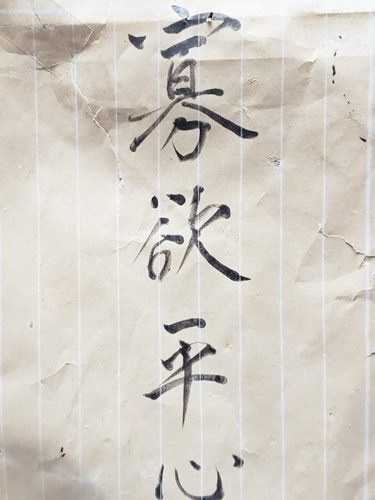 寡欲平心